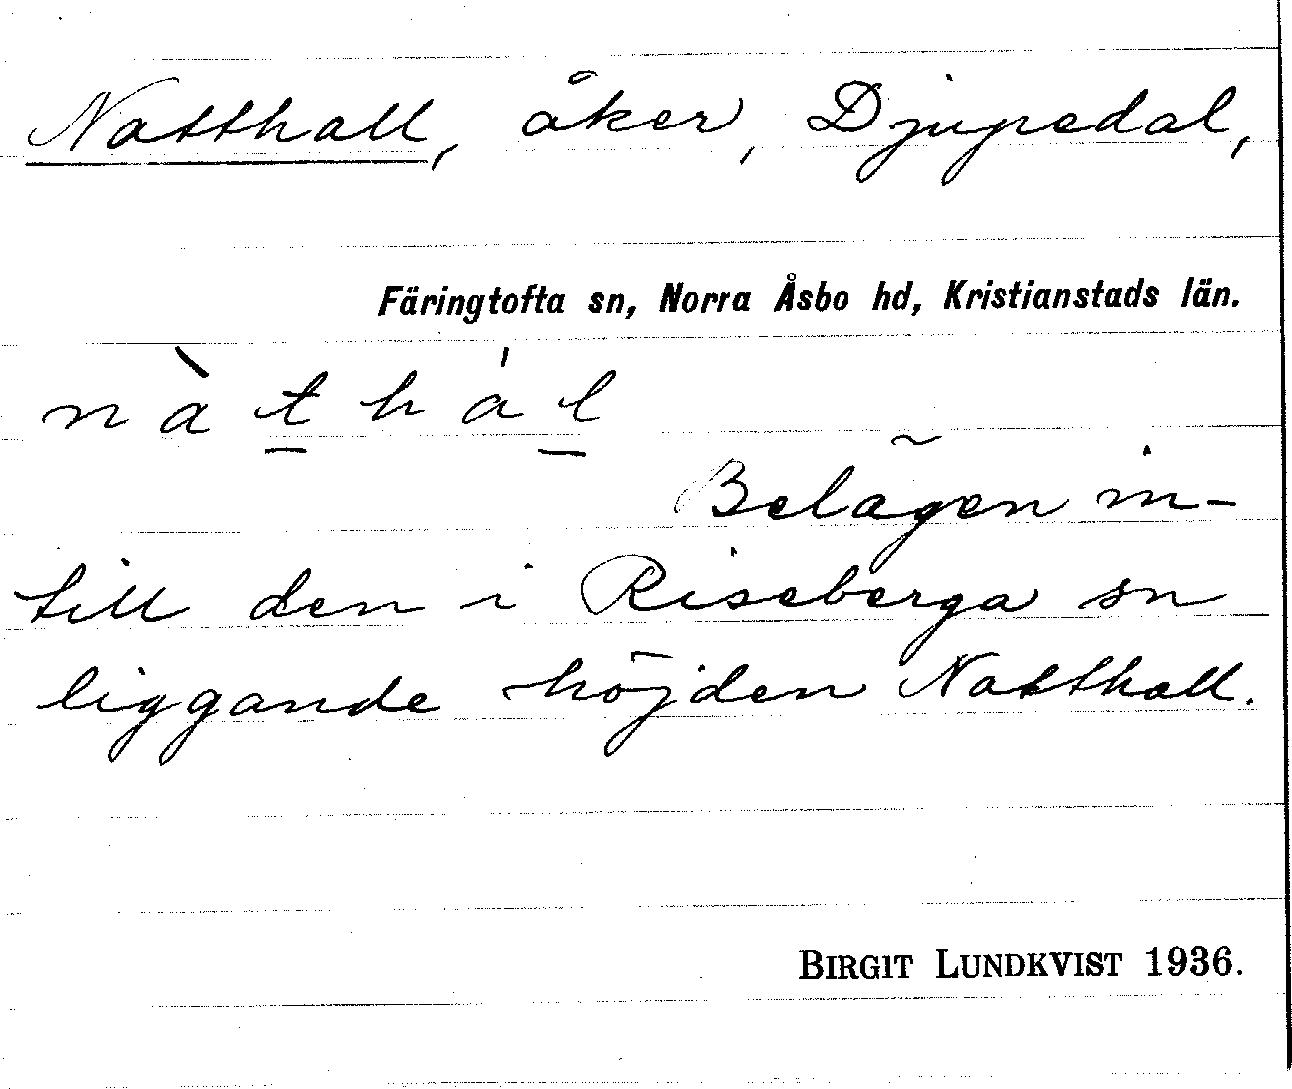 Natthall, åker, Djupedal,
Färingtofta sn, Norra Åsbo hd, Kristianstads län.
nàt̲hál̲
Belägen in-
till den i Riseberga sn
liggande höjden Natthall.
BIRGIT LUNDKVIST 1936.